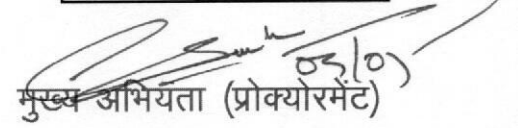 05/07
मुख्य अभियंता (प्रोक्योरमेंट)